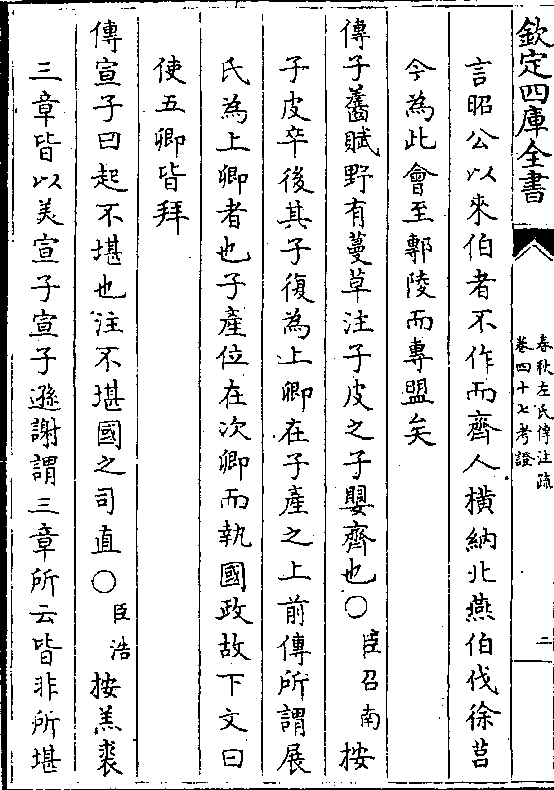 欽定四庫全書
春秋左氏傳注疏
卷四十七考證
二
言昭公以來伯者不作而齊人橫納北燕伯伐徐莒
今為此會至鄟陵而專盟矣
傳子齹賦野有蔓草注子皮之子嬰齊也〇臣召南按
子皮卒後其子復為上卿在子產之上前傳所謂展
氏為上卿者也子產位在次卿而執國政故下文曰
使五卿皆拜
傳宣子曰起不堪也注不堪國之司直〇臣浩按羔裘
三章皆以美宣子宣子遜謝謂三章所云皆非所堪